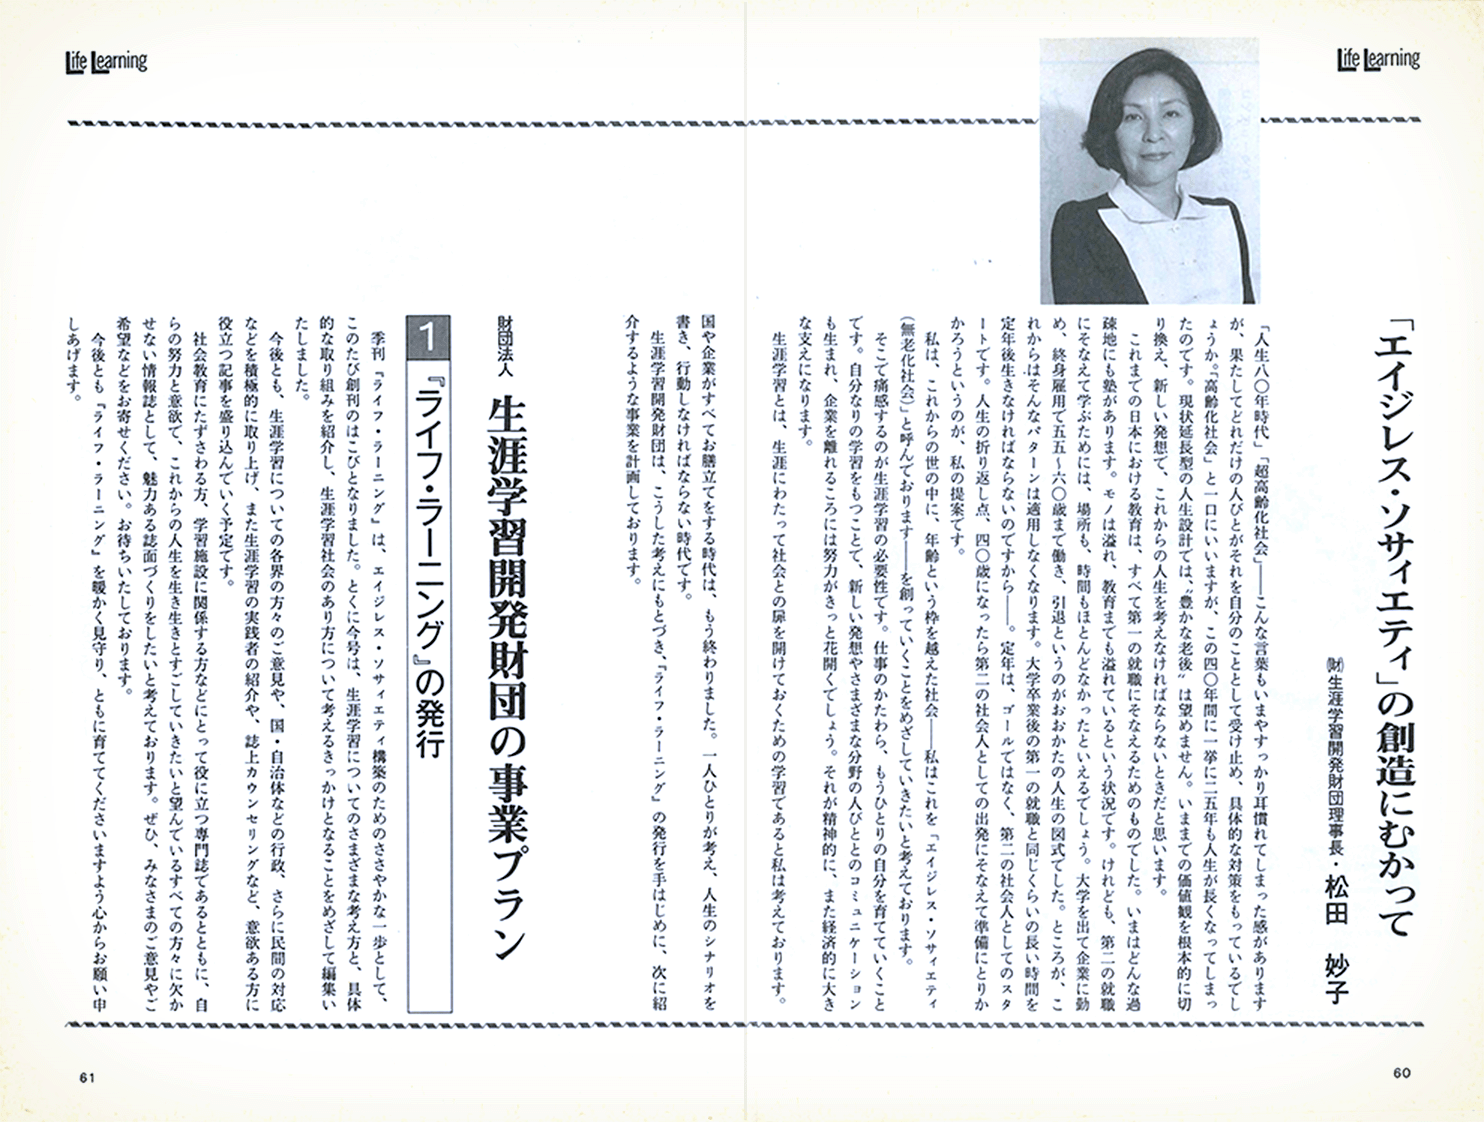 Life Learning
「エイジレス・ソサィエティ」の創造にむかって
㈶生涯学習開発財団理事長・松田 妙子
「人生八〇年時代」「超高齢化社会」――こんな言葉もいまやすっかり耳慣れてしまった感があります
が、果たしてどれだけの人びとがそれを自分のこととして受け止め、具体的な対策をもっているでし
ょうか。『高齢化社会」と一口にいいますが、この四〇年間に一挙に二五年も人生が長くなってしまっ
たのです。現状延長型の人生設計では、〝豊かな老後〟は望めません。いままでの価値観を根本的に切
り換え、新しい発想で、これからの人生を考えなければならないときだと思います。
これまでの日本における教育は、すべて第一の就職にそなえるためのものでした。いまはどんな過
疎地にも塾があります。モノは溢れ、教育までも溢れているという状況です。けれども、第二の就職
にそなえて学ぶためには、場所も、時間もほとんどなかったといえるでしょう。大学を出て企業に勤
め、終身雇用で五五〜六〇歳まで働き、引退というのがおおかたの人生の図式でした。ところが、こ
れからはそんなパターンは適用しなくなります。大学卒業後の第一の就職と同じくらいの長い時間を
定年後生きなければならないのですから――。定年は、ゴールではなく、第二の社会人としてのスタ
ートです。人生の折り返し点、四〇歳になったら第二の社会人としての出発にそなえて準備にとりか
かろうというのが、私の提案です。
私は、これからの世の中に、年齢という枠を越えた社会――私はこれを「エイジレス・ソサィエティ
(無老化社会)」と呼んでおります――を創っていくことをめざしていきたいと考えております。
そこで痛感するのが生涯学習の必要性です。仕事のかたわら、もうひとりの自分を育てていくこと
です。自分なりの学習をもつことで、新しい発想やさまざまな分野の人びととのコミュニケーション
も生まれ、企業を離れるころには努力がきっと花開くでしょう。それが精神的に、また経済的に大き
な支えになります。
生涯学習とは、生涯にわたって社会との扉を開けておくための学習であると私は考えております。
60
Life Learning
国や企業がすべてお膳立てをする時代は、もう終わりました。一人ひとりが考え、人生のシナリオを
書き、行動しなければならない時代です。
生涯学習開発財団は、こうした考えにもとづき、『ライフ・ラーニング』の発行を手はじめに、次に紹
介するような事業を計画しております。
財団法人 生涯学習開発財団の事業プラン
1 『ライフ・ラーニング』の発行
季刊『ライフ・ラーニング』は、エィジレス・ソサィエティ構築のためのささやかな一歩として、
このたび創刊のはこびとなりました。とくに今号は、生涯学習についてのさまざまな考え方と、具体
的な取り組みを紹介し、生涯学習社会のあり方について考えるきっかけとなることをめざして編集い
たしました。
今後とも、生涯学習についての各界の方々のご意見や、国・自治体などの行政、さらに民間の対応
などを積極的に取り上げ、また生涯学習の実践者の紹介や、誌上カウンセリングなど、意欲ある方に
役立つ記事を盛り込んでいく予定です。
社会教育にたずさわる方、学習施設に関係する方などにとって役に立つ専門誌であるとともに、自
らの努力と意欲で、これからの人生を生き生きとすごしていきたいと望んでいるすべての方々に欠か
せない情報誌として、魅力ある誌面づくりをしたいと考えております。ぜひ、みなさまのご意見やご
希望などをお寄せください。お待ちいたしております。
今後とも『ライフ・ラーニング』を暖かく見守り、ともに育ててくださいますよう心からお願い申
しあげます。
61